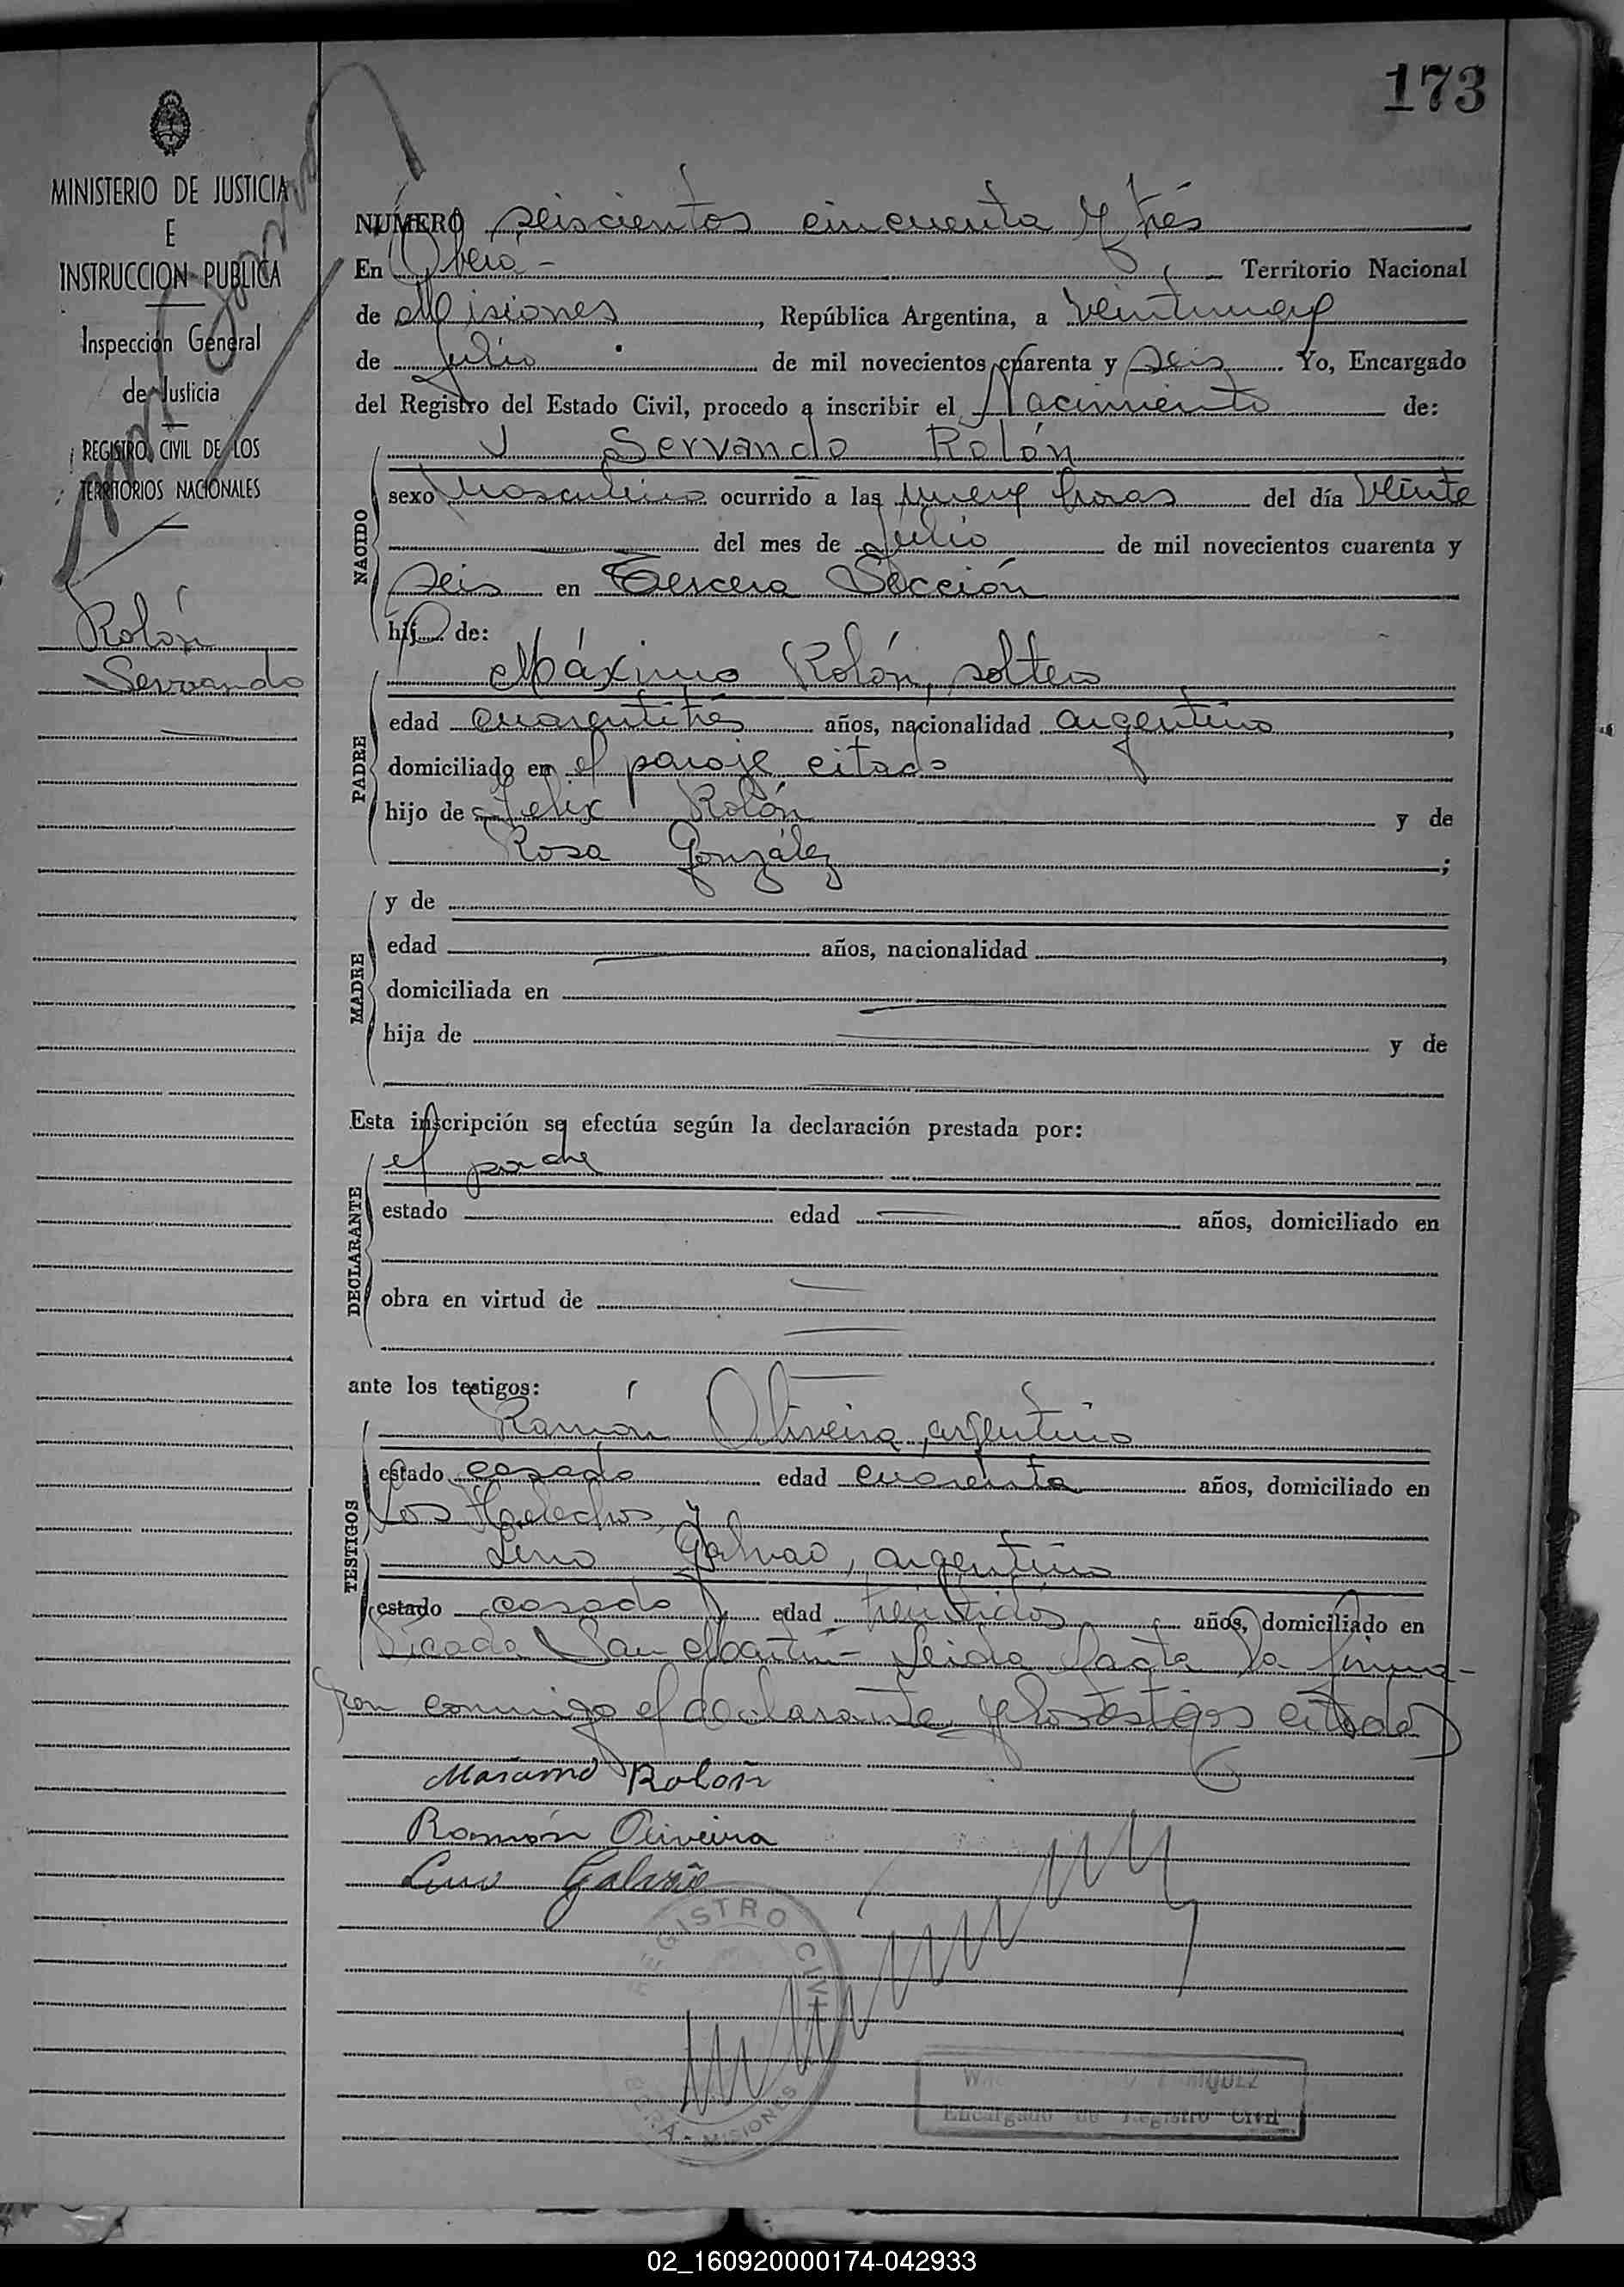 173
MINISTERIO DE JUSTICIA
E
INSTRUCCION PUBLICA
Inspección General
de Justicia
REGISTRO CIVIL DE LOS
TERRITORIOS NACIONALES
Rolón
Servando
NÚMERO seiscientos cincuenta y trés
En Oberá - Territorio Nacional
de Misiones, República Argentina, a veintinueve
de Julio de mil novecientos cuarenta y seis. Yo, Encargado
del Registro del Estado Civil, procedo a inscribir el Nacimiento de:
NACIDO
Servando Rolón
sexo Masculino ocurrido a las nueve horas del día veinte
del mes de Julio de mil novecientos cuarenta y
seis en Tercera Sección
hijo de:
PADRE
Máximo Rolón, soltero
edad cuarentitrés años, nacionalidad argentino,
domiciliado en el paraje citado
hijo de Felix Rolón y de
Rosa González;
MADRE
y de
edad años, nacionalidad,
domiciliada en
hija de y de
Esta inscripción se efectúa según la declaración prestada por:
DECLARANTE
el padre
estado edad años, domiciliado en
obra en virtud de
ante los testigos:
TESTIGOS
Ramón Oliveira, argentino
estado casado edad cuarenta años, domiciliado en
Los Helechos, y
Lino Galvao, argentino
estado casado edad treintidós años, domiciliado en
Picada San Martín - Leida l'acta la firma-
ron conmigo el declarante y los testigos citados
Macsimo Rolón
Ramón Oliveira
Lino Galvão
REGISTRO CIVIL
OBERA - MISIONES
Encargado de Registro Civil
02_160920000174-042933